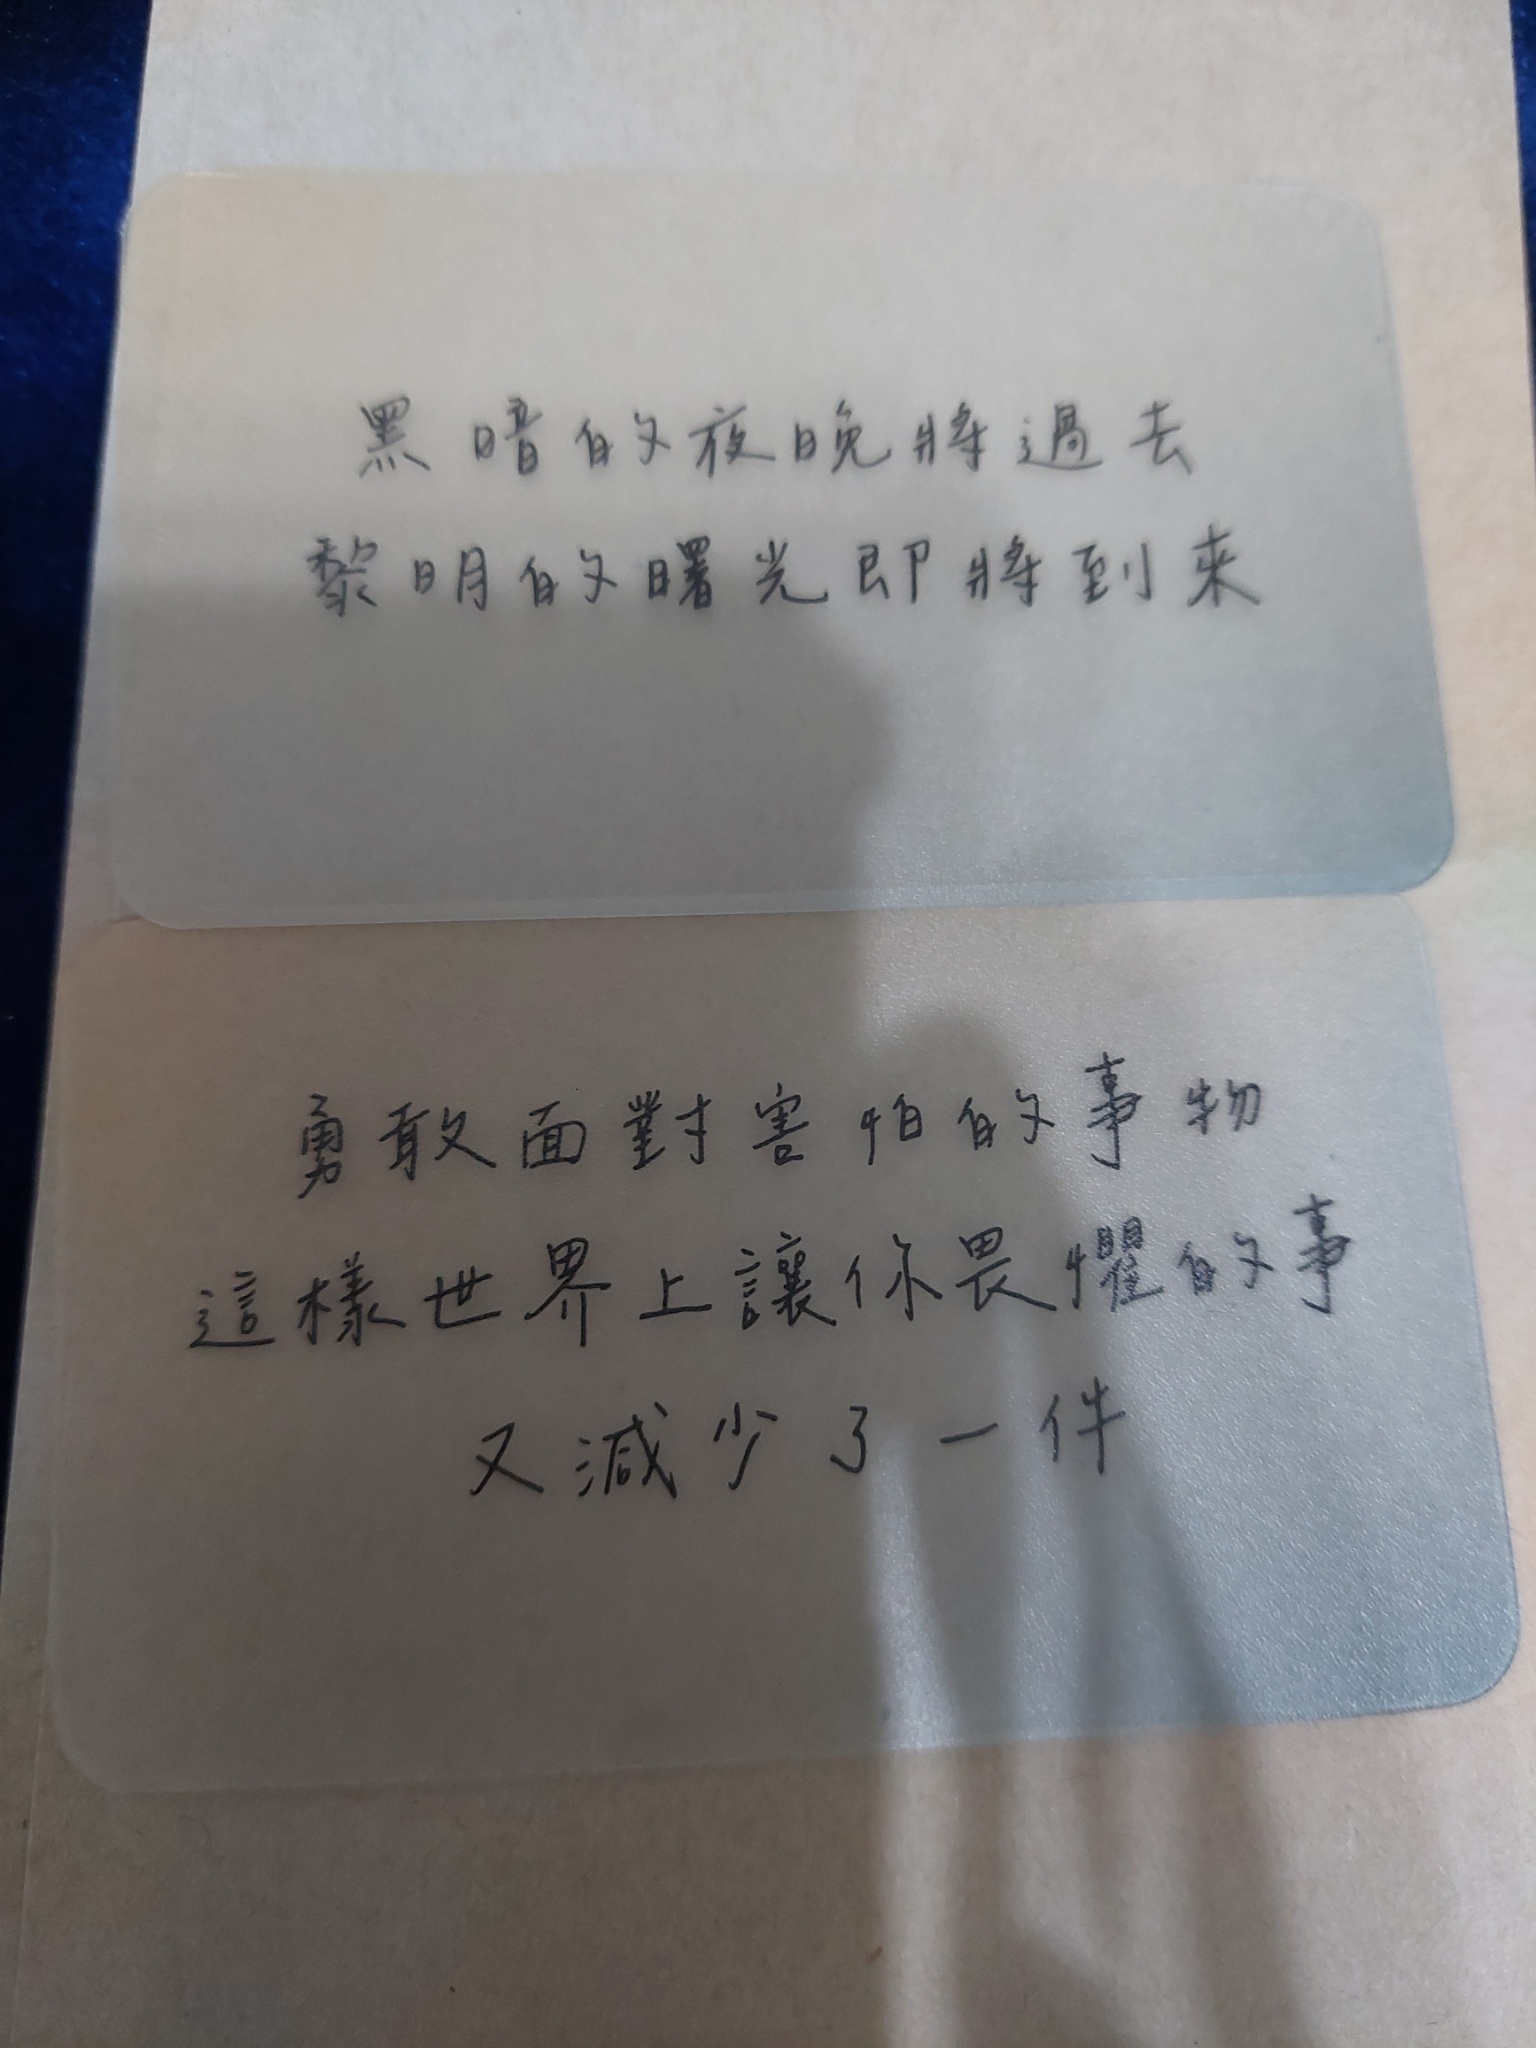 黑暗的夜晚將過去
黎明的曙光即將到來
勇敢面對害怕的事物
這樣世界上讓你畏懼的事
又減少了一件